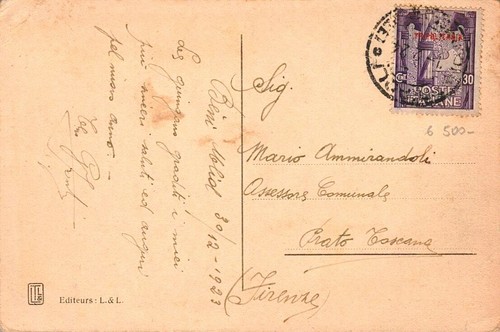 Beni Ulid 30/12-1923
Le giungano graditi i miei
più sinceri saluti ed auguri
pel nuovo anno. -
Sig.
Mario Ammirandoli
Assessore Comunale
Prato Toscana
(Firenze)
TRIPOLITANIA
30
POSTE
ITALIANE
6 500-
Editeurs: L. & L.